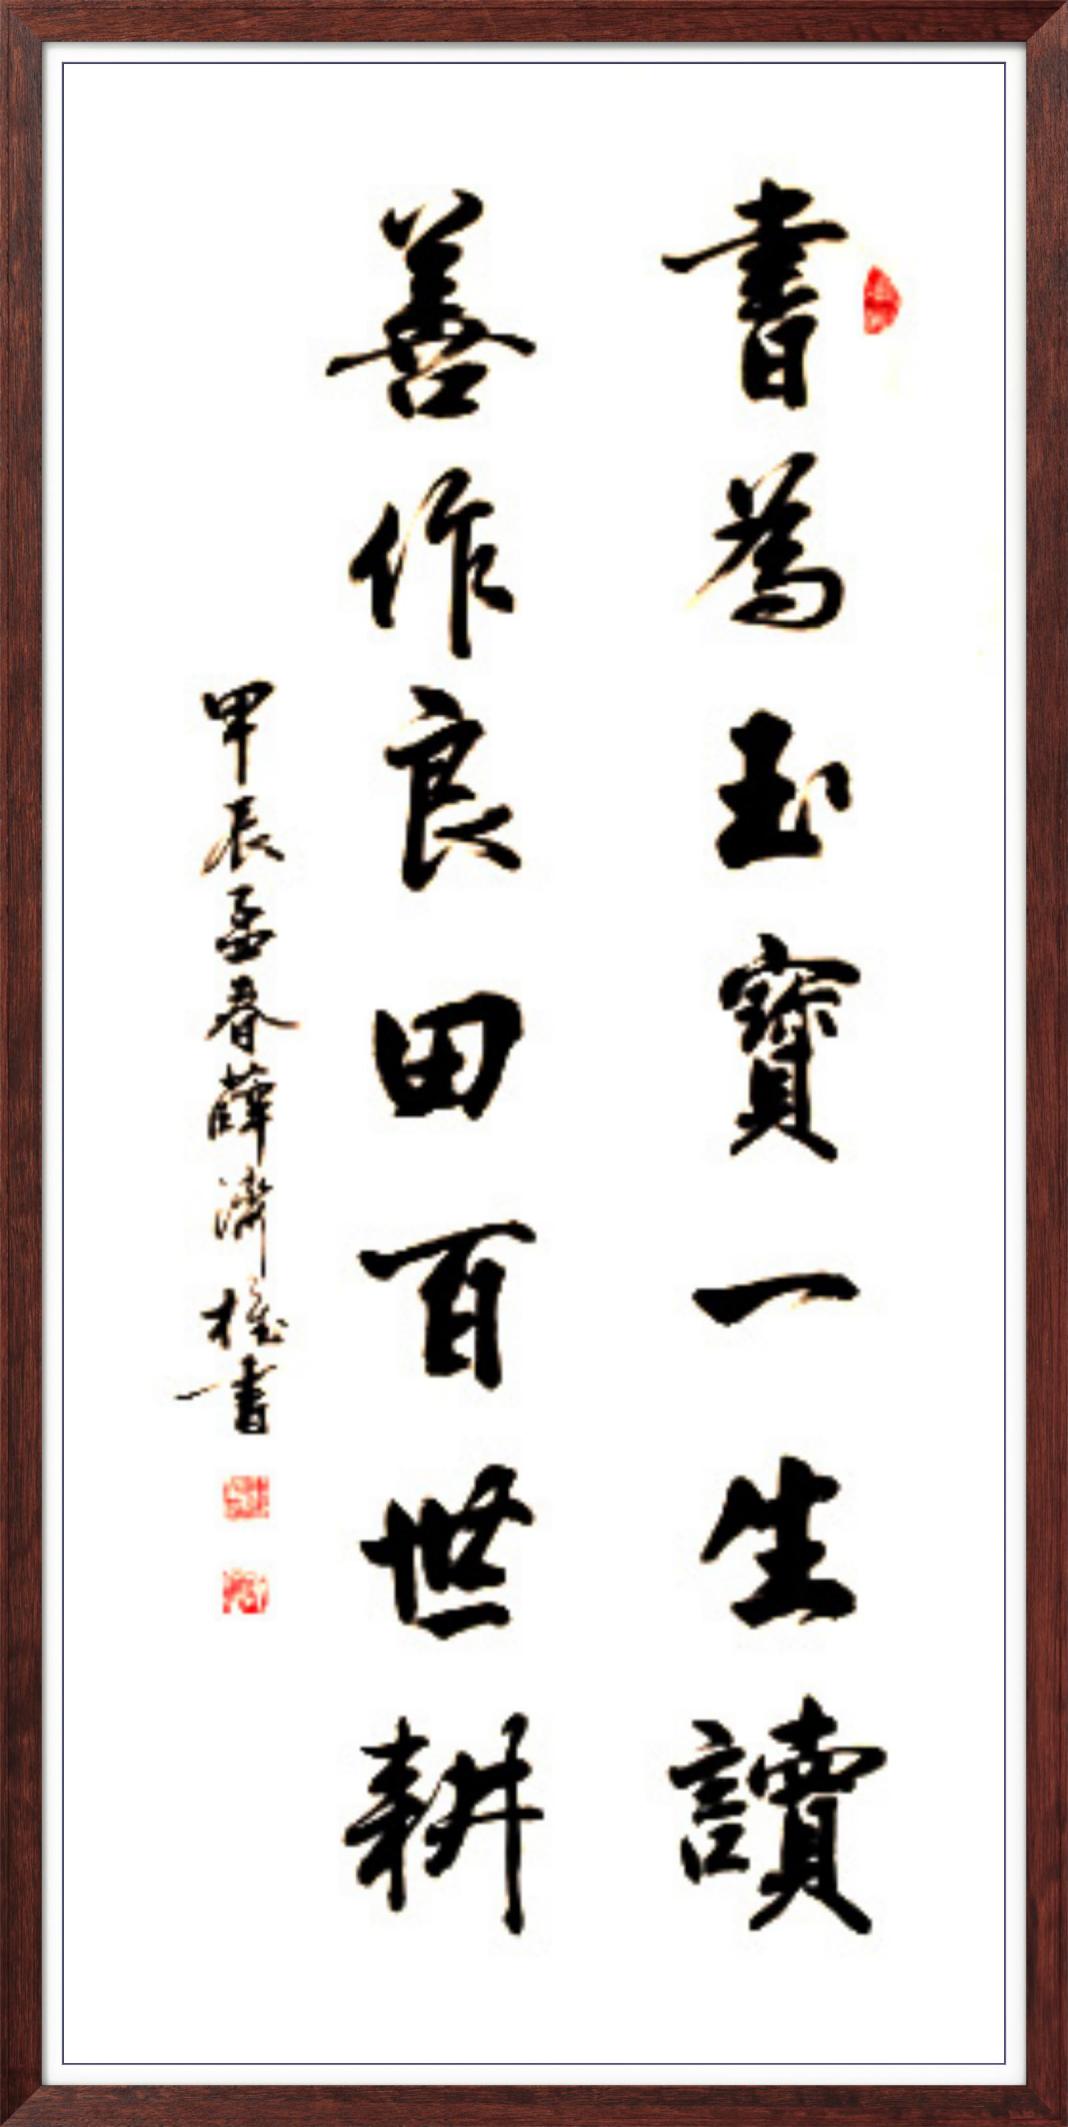 書為玉寶一生讀
善作良田百世耕
甲辰孟春薛濟權書